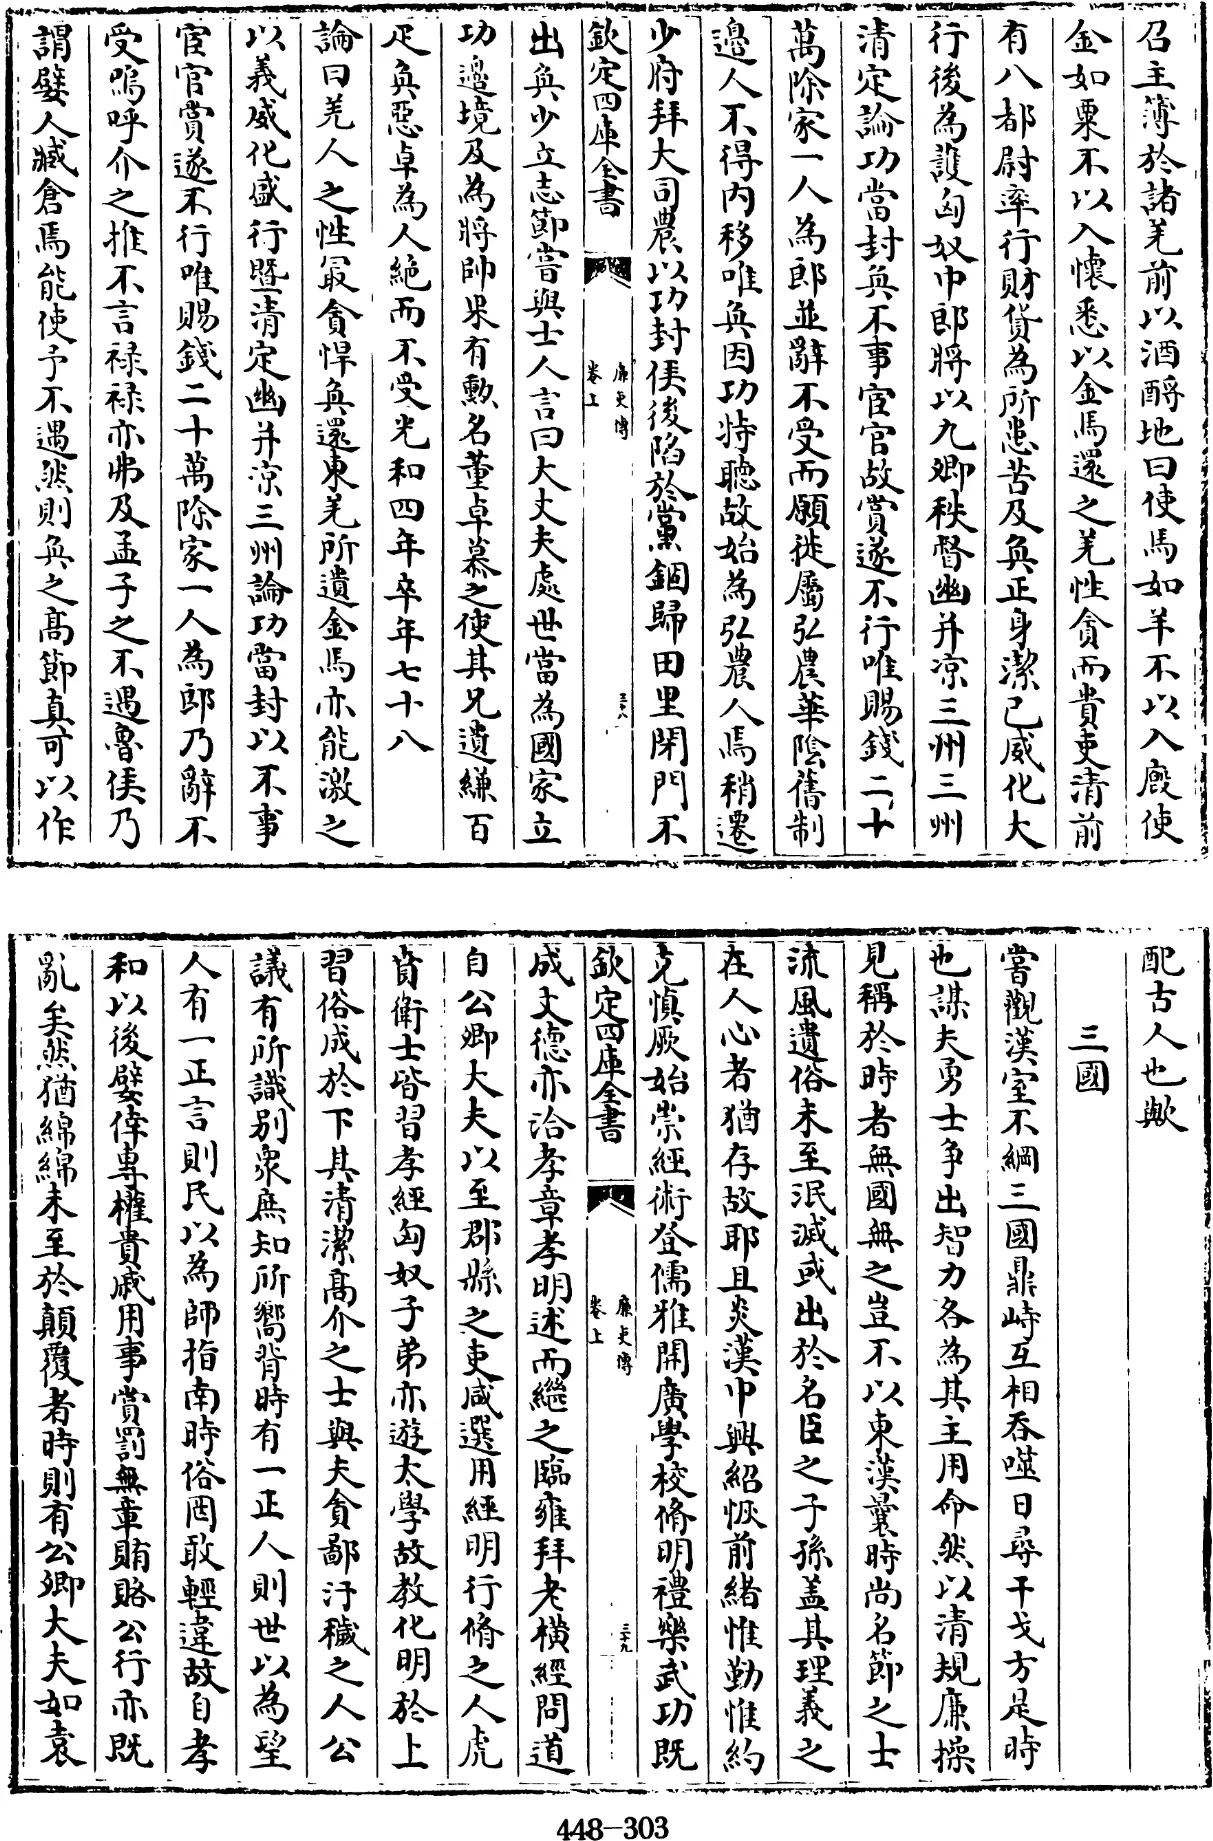 召主簿於諸羌前以酒酹地曰使馬如羊不以入廐使
金如粟不以入懷悉以金馬還之羌性貪而貴吏清前
有八都尉率行財貨為所患苦及奐正身潔已威化大
行後為護匈奴中郎將以九卿秩督幽并凉三州三州
清定論功當封奐不事宦官故賞遂不行唯賜錢二十
萬除家一人為郎並辭不受而願徙屬弘農華隂舊制
邉人不得内移唯奐因功特聽故始為弘農人焉稍遷
少府拜大司農以功封侯後陷於黨錮歸田里閉門不
欽定四庫全書
廉吏傳
卷上
三十八
出奐少立志節嘗與士人言曰大丈夫處世當為國家立
功邉境及為將帥果有勲名董卓慕之使其兄遺縑百
疋奐惡卓為人絶而不受光和四年卒年七十八
論曰羌人之性最貪悍奐還東羌所遺金馬亦能激之
以義威化盛行暨清定幽并凉三州論功當封以不事
宦官賞遂不行唯賜錢二十萬除家一人為郎乃辭不
受嗚呼介之推不言禄禄亦弗及孟子之不遇魯侯乃
謂嬖人臧倉焉能使予不遇然則奐之髙節真可以作
配古人也歟
三國
嘗觀漢室不綱三國鼎峙互相吞噬日尋干戈方是時
也謀夫勇士争出智力各為其主用命然以清規廉操
見稱於時者無國無之豈不以東漢曩時尚名節之士
流風遺俗未至泯滅或出於名臣之子孫盖其理義之
在人心者猶存故耶且炎漢中興紹恢前緒惟勤惟約
克慎厥始崇經術登儒雅開廣學校脩明禮樂武功既
欽定四庫全書
廉吏傳
卷上
三十九
成文德亦洽孝章孝明述而繼之臨雍拜老横經問道
自公卿大夫以至郡縣之吏咸選用經明行脩之人虎
賁衛士皆習孝經匈奴子弟亦遊太學故教化明於上
習俗成於下其清潔髙介之士與夫貪鄙汙穢之人公
議有所識别衆庶知所嚮背時有一正人則世以為望
人有一正言則民以為師指南時俗罔敢輕違故自孝
和以後嬖倖專權貴戚用事賞罰無章賄賂公行亦既
亂矣然猶綿綿未至於顛覆者時則有公卿大夫如袁
448-303